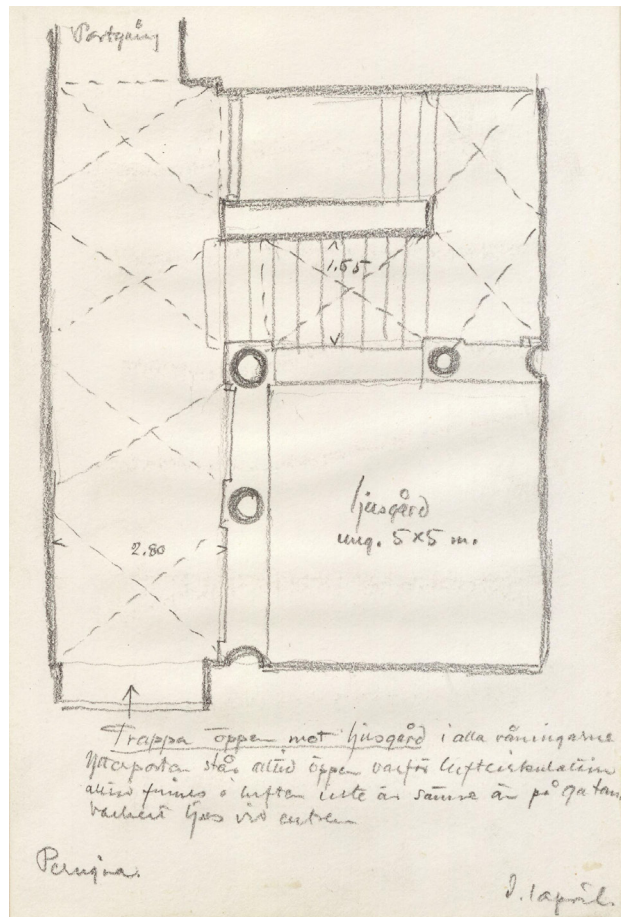 Portgång
1.55
ljusgård
ung. 5×5 m.
2.80
Trappa öppen mot ljusgård i alla våningarne
Ytterporten står alltid öppen varför luftcirkulation
alltid finnes o luften inte är sämre än på gatan
vackert ljus vid entren
Perugia.
1 april.